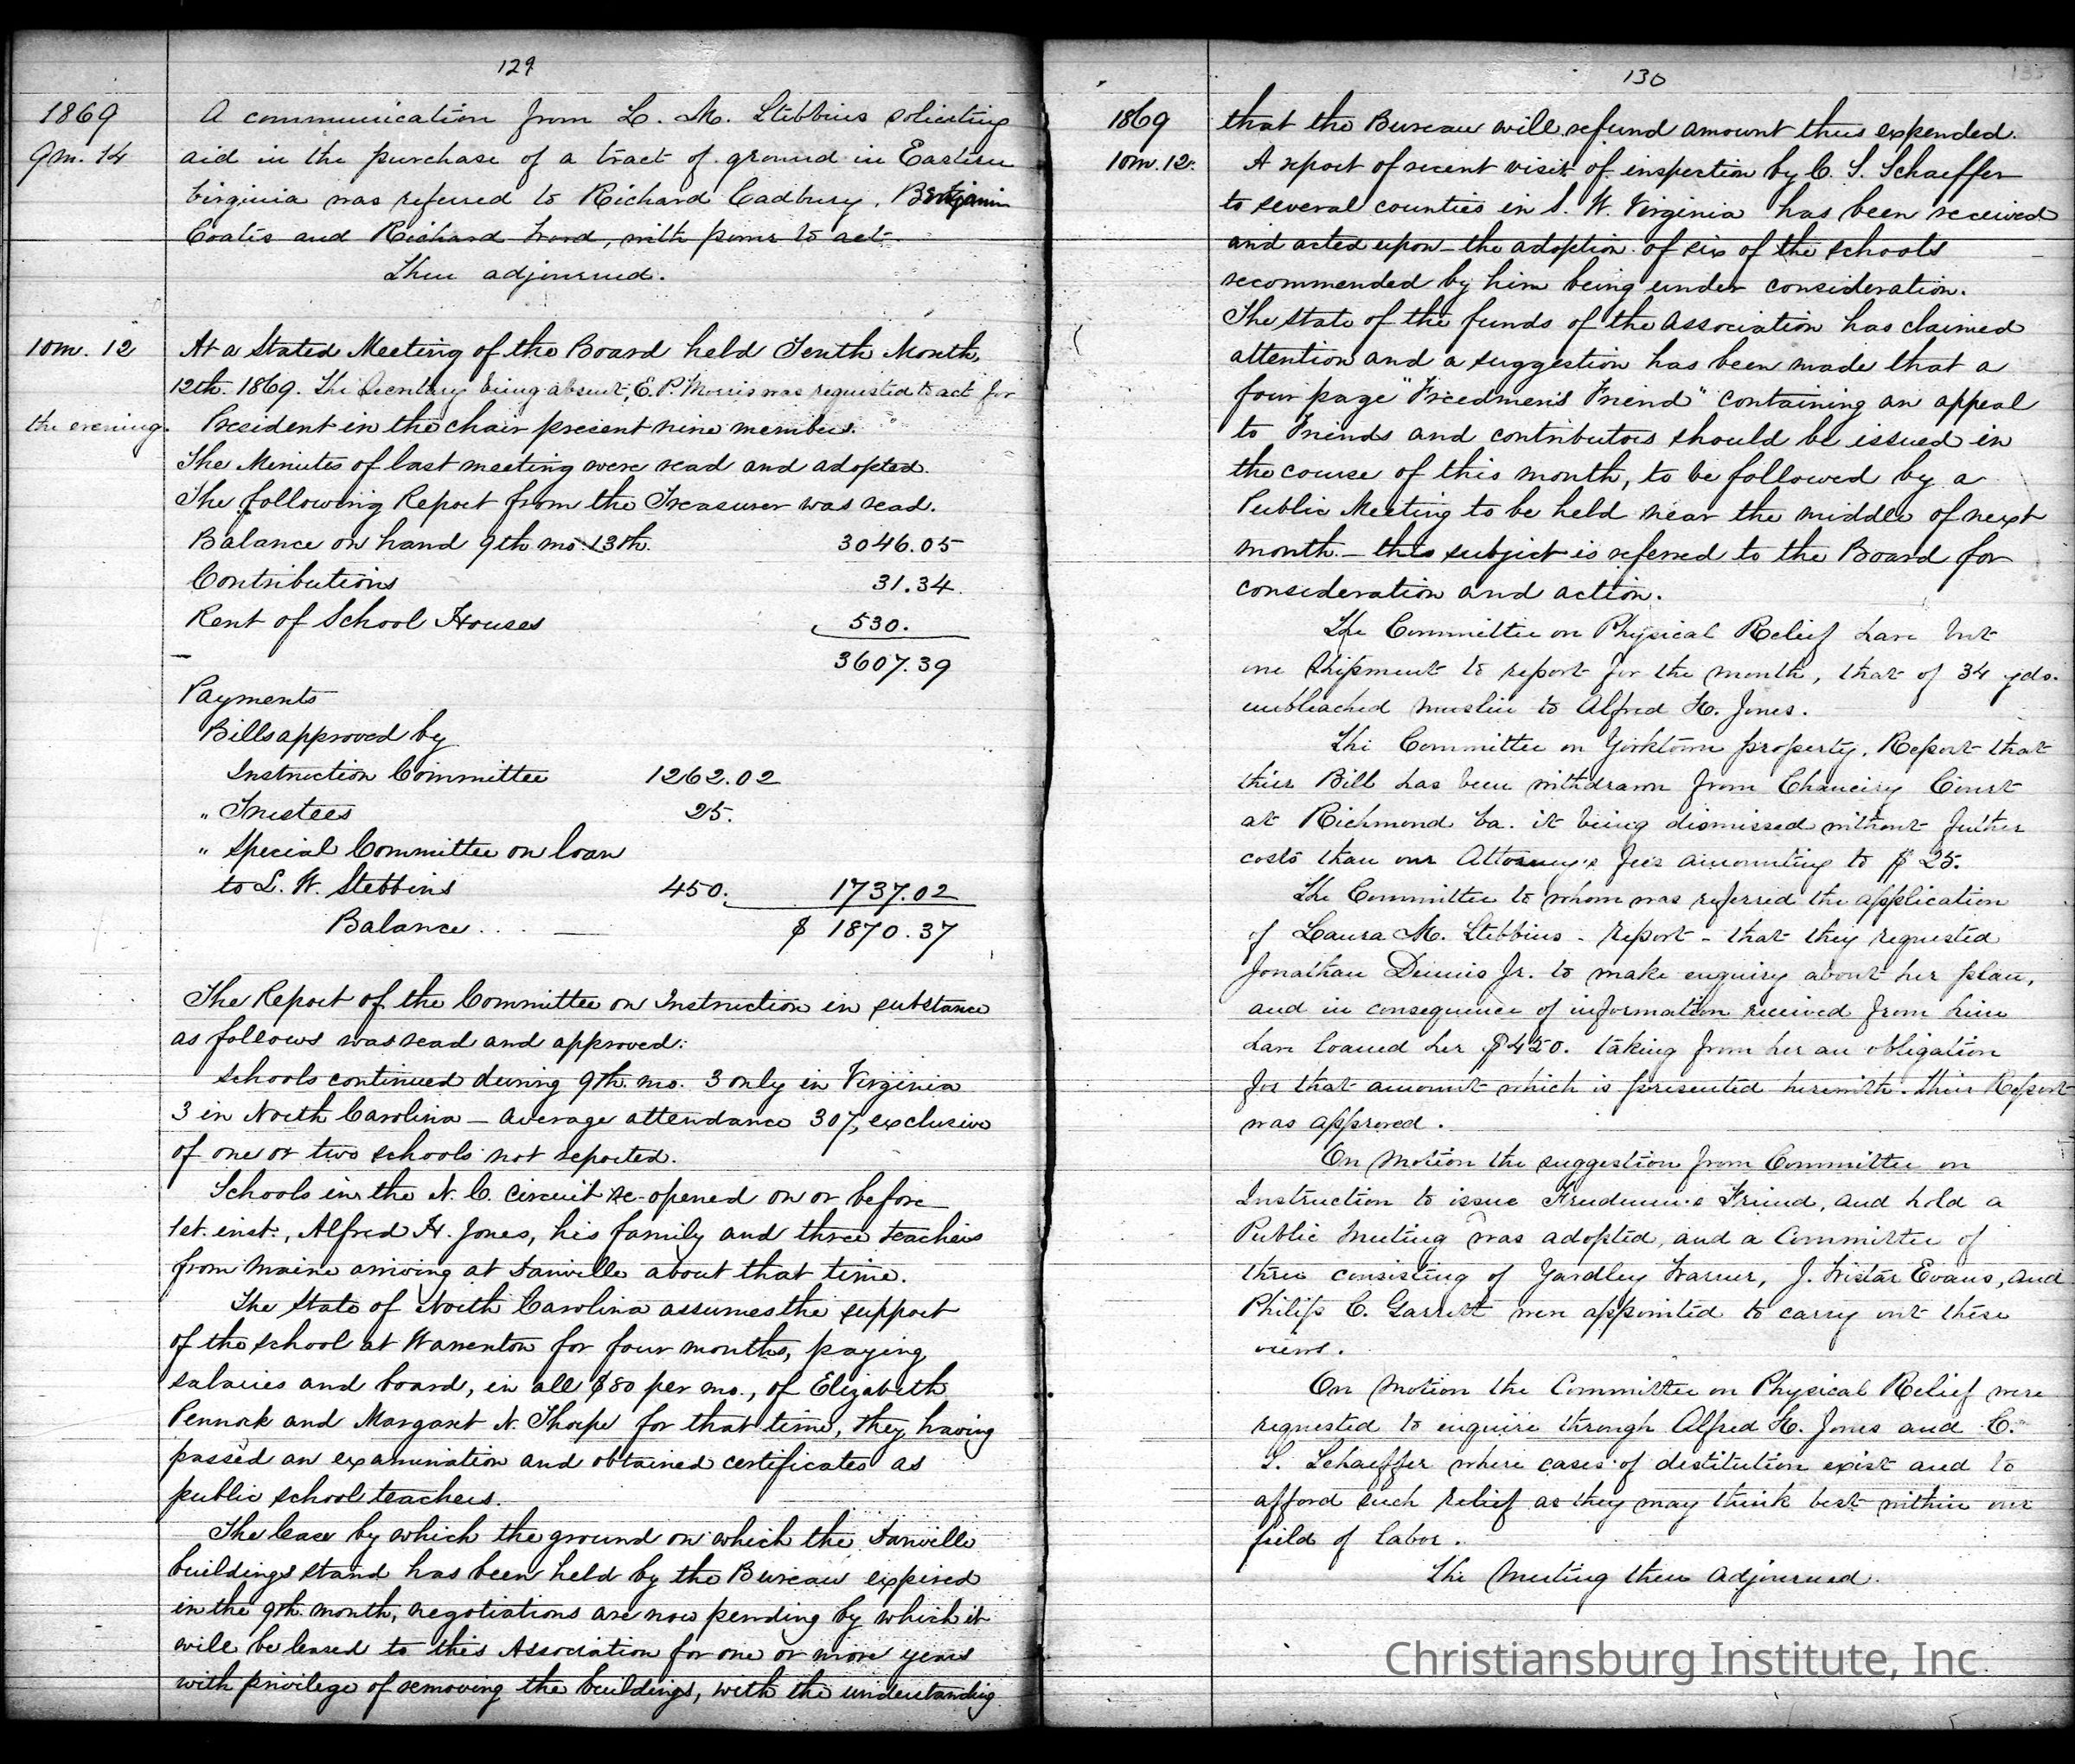 129
1869
9m. 14
A communication from L. M. Stebbins soliciting
aid in the purchase of a tract of ground in Eastern
Virginia was referred to Richard Cadbury, Benjamin
Coates and Richard Wood, with power to act.
Then adjourned.
10m. 12
At a Stated Meeting of the Board held Tenth Month,
12th. 1869. The Secretary being absent, E. P. Morris was requested to act for
the evening.
President in the chair present nine members.
The Minutes of last meeting were read and adopted.
The following Report from the Treasurer was read.
Balance on hand 9th mo. 13th. 3046.05
Contributions 31.34
Rent of School Houses 530.
3607.39
Payments
Bills approved by
Instruction Committee 1262.02
" Trustees 25.
" Special Committee on loan
to L. W. Stebbins 450. 1737.02
Balance . . . $ 1870.37
The Report of the Committee on Instruction in substance
as follows was read and approved:
Schools continued during 9th. mo. 3 only in Virginia
3 in North Carolina – average attendance 307, exclusive
of one or two schools not reported.
Schools in the N. C. circuit re-opened on or before
1st. inst., Alfred H. Jones, his family and three teachers
from Maine arriving at Danville about that time.
The State of North Carolina assumes the support
of the school at Warrenton for four months, paying
salaries and board, in all $80 per mo., of Elizabeth
Pennock and Margaret N. Thorpe for that time, they having
passed an examination and obtained certificates as
public school teachers.
The lease by which the ground on which the Danville
buildings stand has been held by the Bureau expired
in the 9th. month, negotiations are now pending by which it
will be leased to this Association for one or more years
with privilege of removing the buildings, with the understanding
130
1869
10m. 12.
that the Bureau will refund amount thus expended.
A report of recent visit of inspection by C. S. Schaeffer
to several counties in S. W. Virginia has been received
and acted upon – the adoption of six of the schools
recommended by him being under consideration.
The state of the funds of the Association has claimed
attention and a suggestion has been made that a
four page "Freedmen's Friend" containing an appeal
to Friends and contributors should be issued in
the course of this month, to be followed by a
Public Meeting to be held near the middle of next
month. – this subject is referred to the Board for
consideration and action.
The Committee on Physical Relief have but
one shipment to report for the month, that of 34 yds.
unbleached muslin to Alfred H. Jones.
The Committee on Yorktown property, Report that
their Bill has been withdrawn from Chancery Court
at Richmond Va. it being dismissed without futher
costs than our Attorney's fees amounting to $ 25.
The Committee to whom was referred the application
of Laura M. Stebbins – report – that they requested
Jonathan Dennis Jr. to make enquiry about her plan,
and in consequence of information received from him
have loaned her $450. taking from her an obligation
for that amount which is presented herewith. Their Report
was approved.
On motion the suggestion from Committee on
Instruction to issue Freedmen's Friend, and hold a
Public Meeting was adopted, and a Committee of
three consisting of Yardley Warner, J. Wistar Evans, and
Philip C. Garrett were appointed to carry out these
views.
On motion the Committee on Physical Relief were
requested to enquire through Alfred H. Jones and C.
S. Schaeffer where cases of destitution exist and to
afford such relief as they may think best within our
field of labor.
The Meeting then adjourned.
Christiansburg Institute, Inc